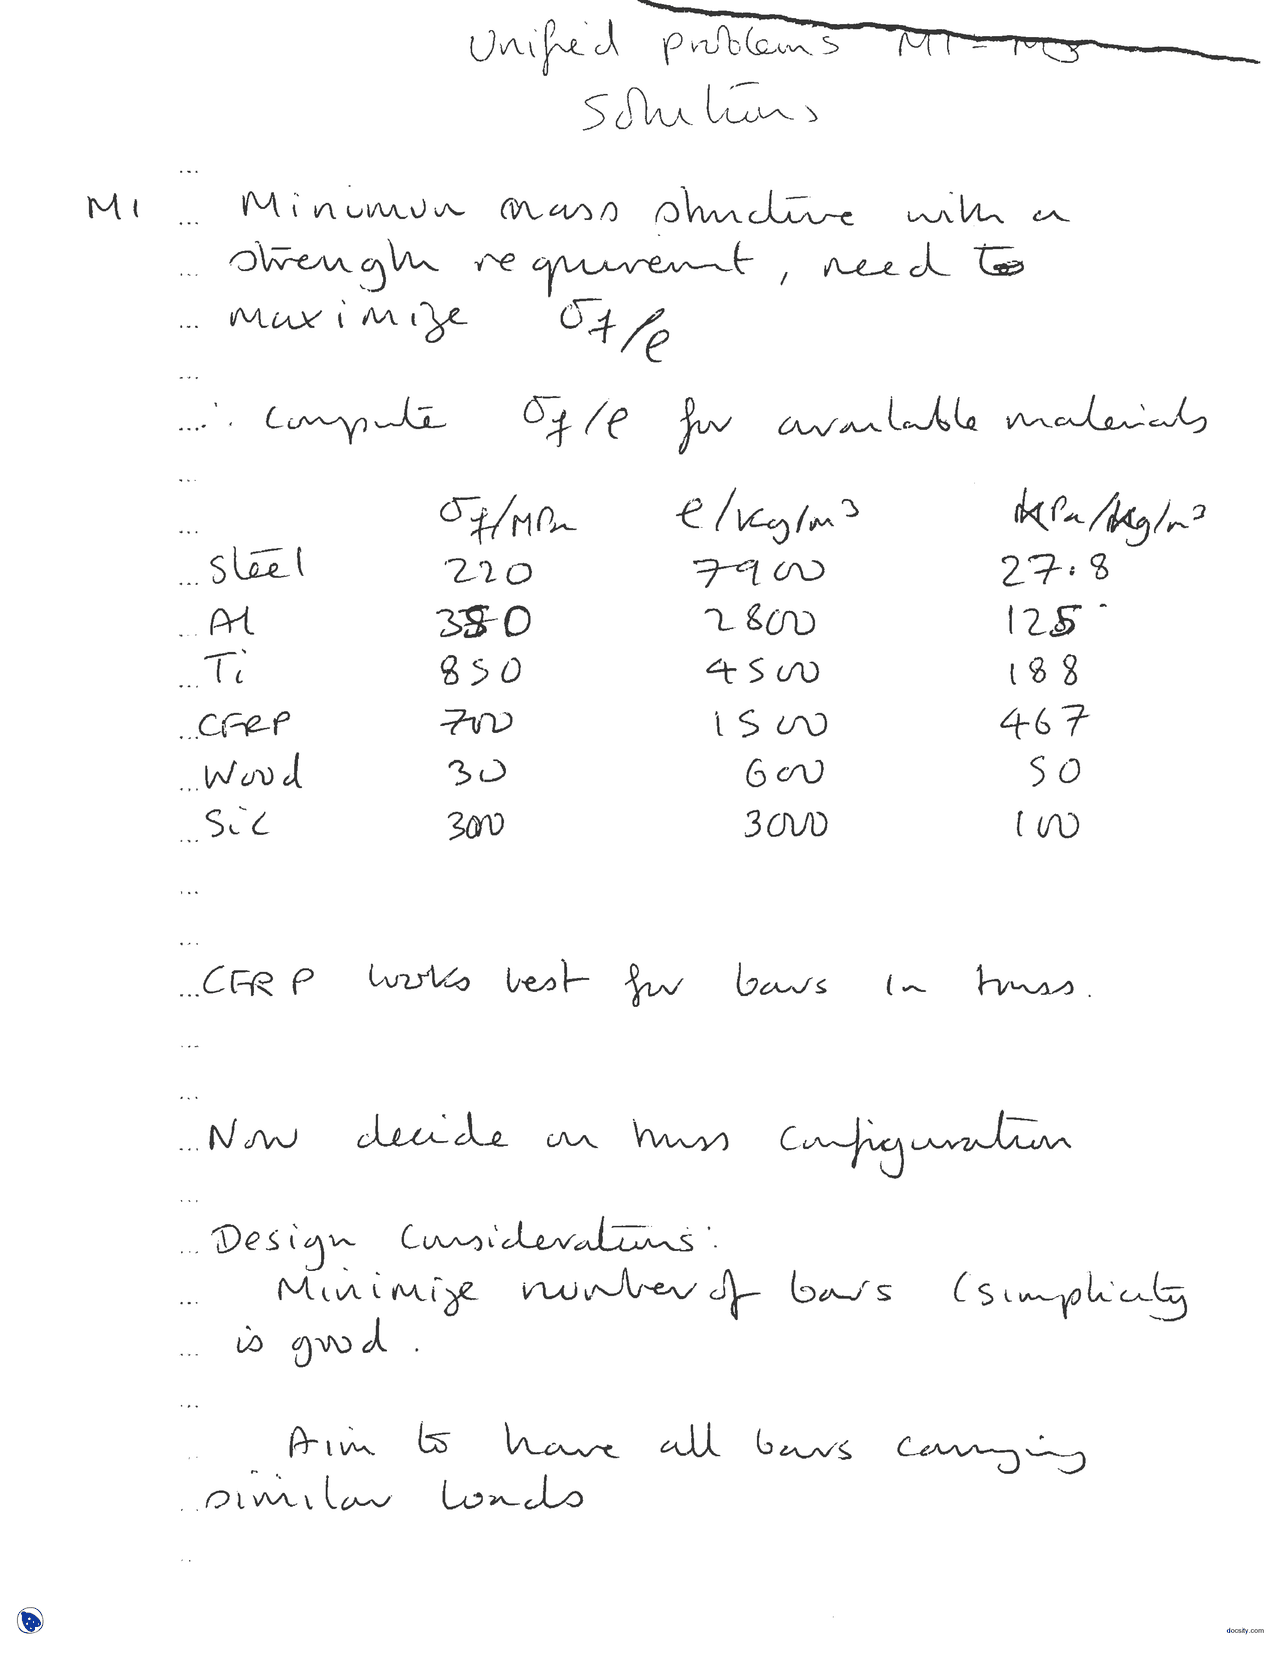 Unified Problems M1-M3
Solutions
M1 Minimum mass structure with a
strength requirement, need to
maximize σf/ρ
∴ compute σf/ρ for available materials
σf/MPa ρ/Kg/m³ kPa/kg/m³
Steel 220 7900 27.8
Al 350 2800 125
Ti 850 4500 188
CFRP 700 1500 467
Wood 30 600 50
SiC 300 3000 100
CFRP works best for bars in truss.
Now decide on truss configuration
Design Considerations:
Minimize number of bars (simplicity
is good.
Aim to have all bars carrying
similar loads
docsity.com